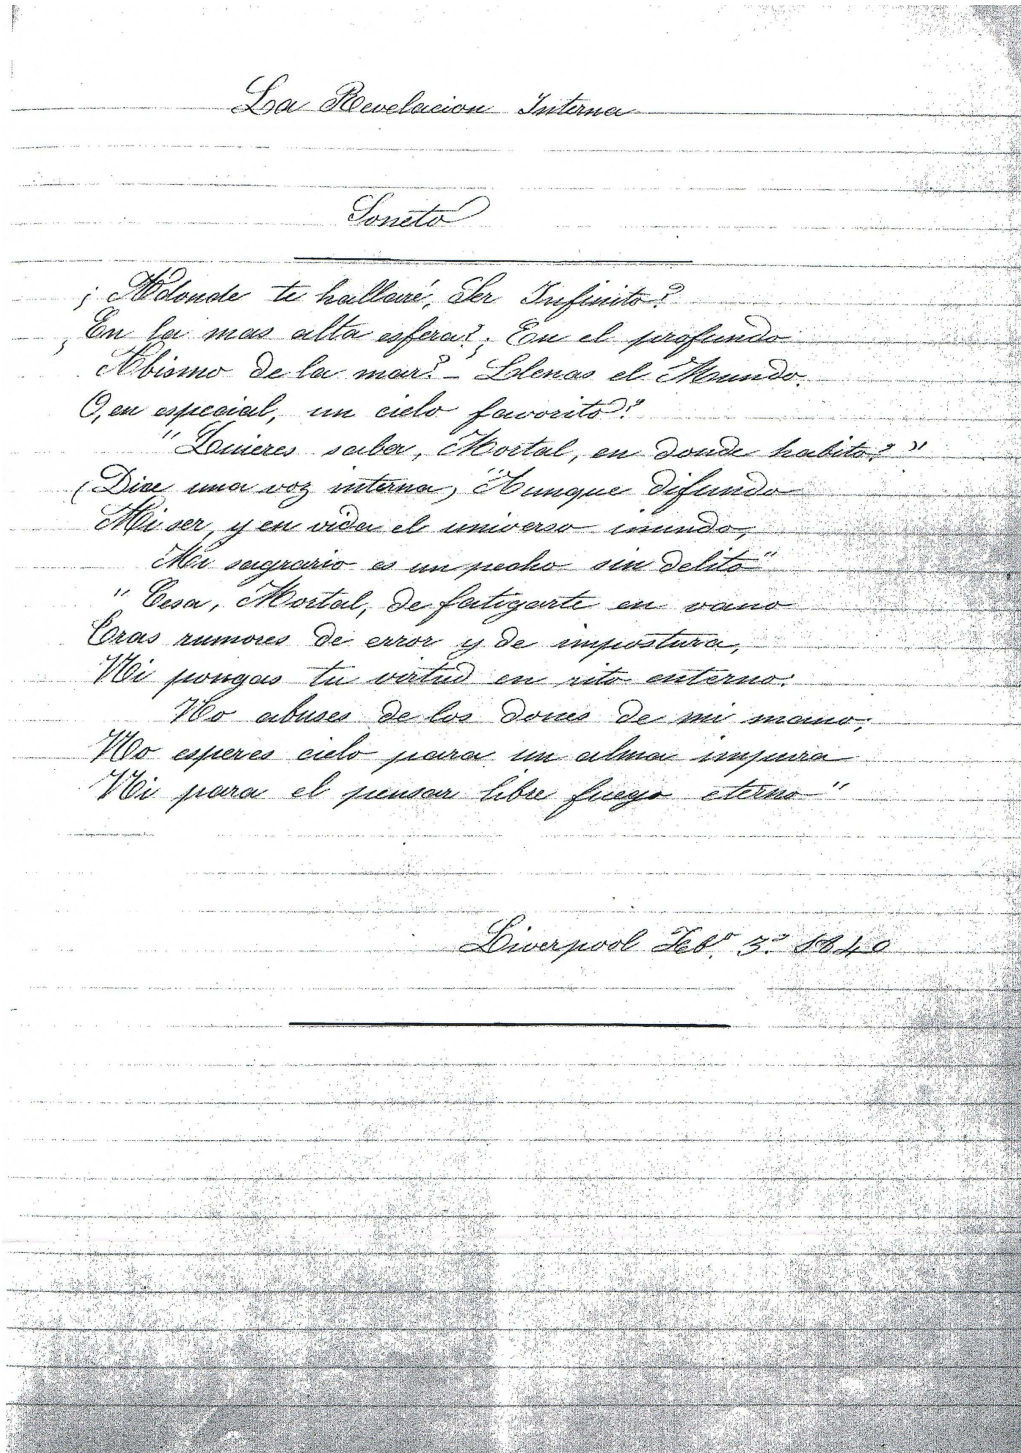 La Revelacion Interna
Soneto
¿Adonde te hallaré, Ser Infinito?
¿En la mas alta esfera? ¿En el profundo
Abismo de la mar? – Llenas el Mundo.
O, en especial, un cielo favorito?
"Quieres saber, Mortal, en donde habito?"
(Dice una voz interna) "Aunque difundo
Mi ser, y en vida el universo inundo,
Mi sagrario es un pecho sin delito"
"Cesa, Mortal, de fatigarte en vano
Tras rumores de error y de impostura,
Ni pongas tu virtud en rito enterno:
No abuses de los dones de mi mano;
No esperes cielo para un alma impura
Ni para el pensar libre fuego eterno"
Liverpool Feb.º 3.º 1840